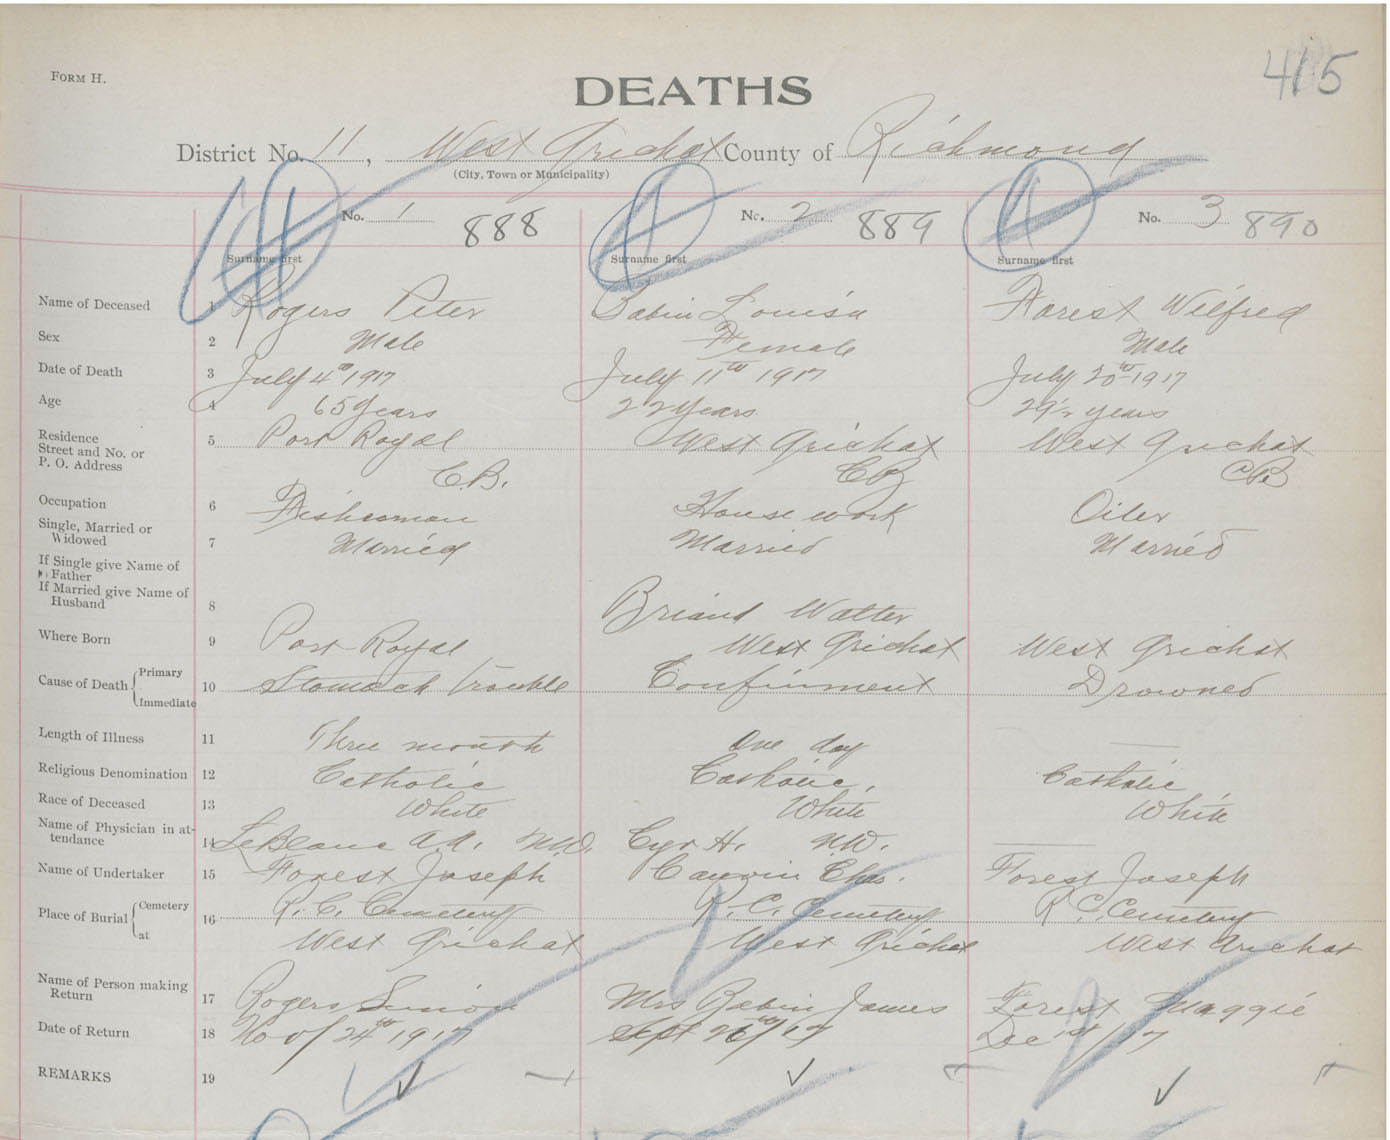 FORM H.
415
DEATHS
District No. 11, West Arichat County of Richmond
(City, Town or Municipality)
No. 1 888 No. 2 889 No. 3 890
Surname first Surname first Surname first
Name of Deceased 1 Rogers Peter Babin Louisa Forest Wilfred
Sex 2 Male Female Male
Date of Death 3 July 4th 1917 July 11th 1917 July 20th 1917
Age 4 65 years 22 years 29½ years
Residence
Street and No. or
P. O. Address
5 Port Royal West Arichat West Arichat
C.B. CB CB
Occupation 6 Fisherman House work Oiler
Single, Married or
Widowed
7 Married Married Married
If Single give Name of
Father
If Married give Name of
Husband
8 Briand Walter
Where Born 9 Port Royal West Arichat West Arichat
Cause of Death Primary
Immediate
10 Stomach Trouble Confinment Drowned
Length of Illness 11 Three month One day
Religious Denomination 12 Catholic Catholic, Catholic
Race of Deceased 13 White White White
Name of Physician in at-
tendance
14 LeBlanc A.A. M.D. Cyr H. M.D.
Name of Undertaker 15 Forest Joseph Chas. Forest Joseph
Place of Burial Cemetery
at
16 R. C. Cemetery R. C. Cemetery R C. Cemetery
West Arichat West Arichat West Arichat
Name of Person making
Return
17 Rogers Simon Mrs Babin James Forest Maggie
Date of Return 18 Nov 24th 1917 Sept 26th/17 Dec 1st/17
REMARKS 19